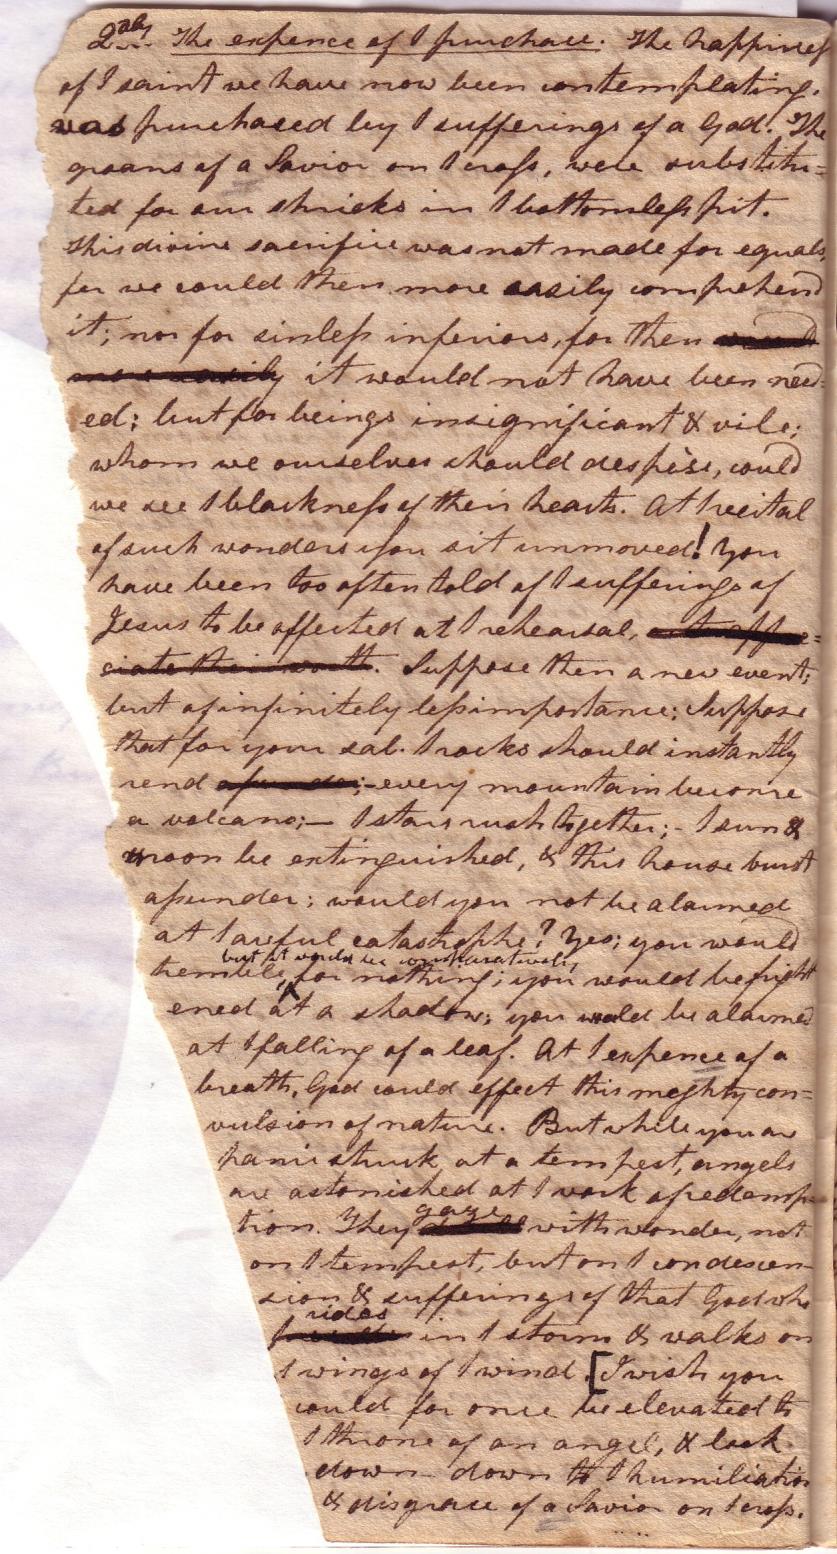 2dly. The expence of / purchase. The happiness
of / saint we have now been contemplating.
was purchased by / sufferings of a God. The
groans of a Savior on / cross, were substitu=
ted for our shrieks in / bottomless pit.
This divine sacrifice was not made for equals,
for we could then more easily comprehend
it; nor for sinless inferiors, for then would
more easily it would not have been need=
ed; but for beings insignificant & vile;
whom we ourselves should despise, could
we see / blackness of their hearts. At / recital
of such wonders you sit unmoved! You
have been too often told of / sufferings of
Jesus to be affected at / rehearsal,
ciate their worth. Suppose then a new event;
but of infinitely less importance; Suppose
that for your sal. / rocks should instantly
rend asunder;- every mountain become
a volcano;— / stars rush together;- / sun &
moon be extinguished, & this house burst
asunder; would you not be alarmed
at / awful catastrophe? Yes; you would
but it would be comparatively
tremble, ^ for nothing; you would be fright
ened at a shadow; you would be alarmed
at / falling of a leaf. At / expence of a
breath, God could effect this mighty con=
vulsion of nature. But while you are
panic struck at a tempest, angels
are astonished at / work of redemp-
gaze
tion. They with wonder, not
on / tempest, but on / condescen-
sion & sufferings of that God who
rides
in / storm & walks on
/ wings of / wind. [I wish you
could for once be elevated to
/ throne of an angel, & look
down down to / humiliation
& disgrace of a Savior on / cross.